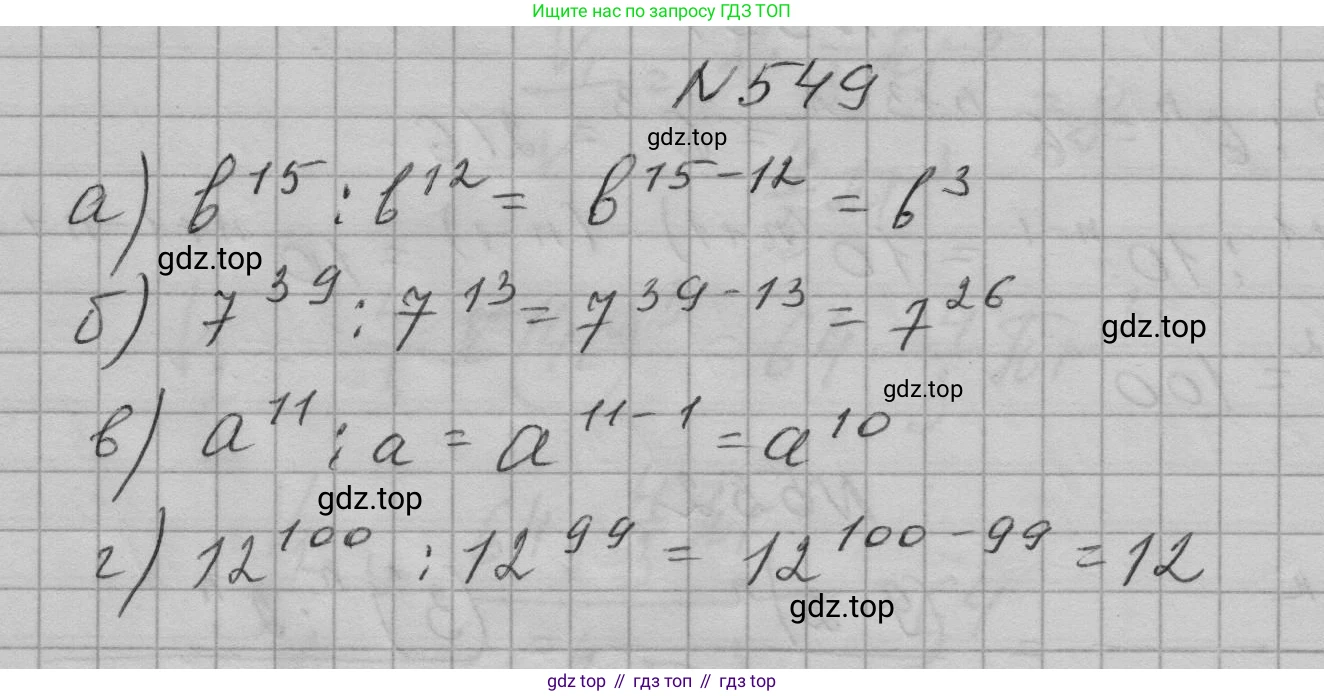 Ищите нас по запросу ГДЗ ТОП
N 549
gdz.top
а) b¹⁵ : b¹² = b¹⁵⁻¹² = b³
gdz.top
б) 7³⁹ : 7¹³ = 7³⁹⁻¹³ = 7²⁶
gdz.top
gdz.top
в) a¹¹ : a = a¹¹⁻¹ = a¹⁰
gdz.top
г) 12¹⁰⁰ : 12⁹⁹ = 12¹⁰⁰⁻⁹⁹ = 12
gdz.top
gdz top // гдз топ // гдз top